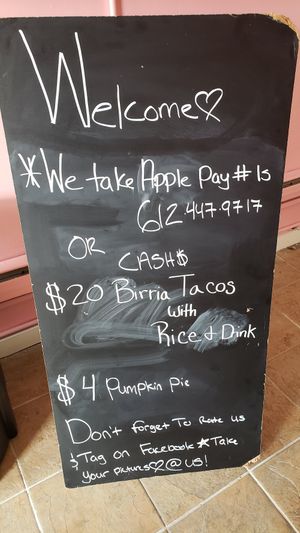 Welcome♡
*We take Apple Pay # Is
612 447.9717
OR
CASH$
$20 Birria Tacos
with
Rice & Dink
$4 Pumpkin Pie
Don't forget To Rate us
& Tag on Facebook ★Take
your pictures♡@us!